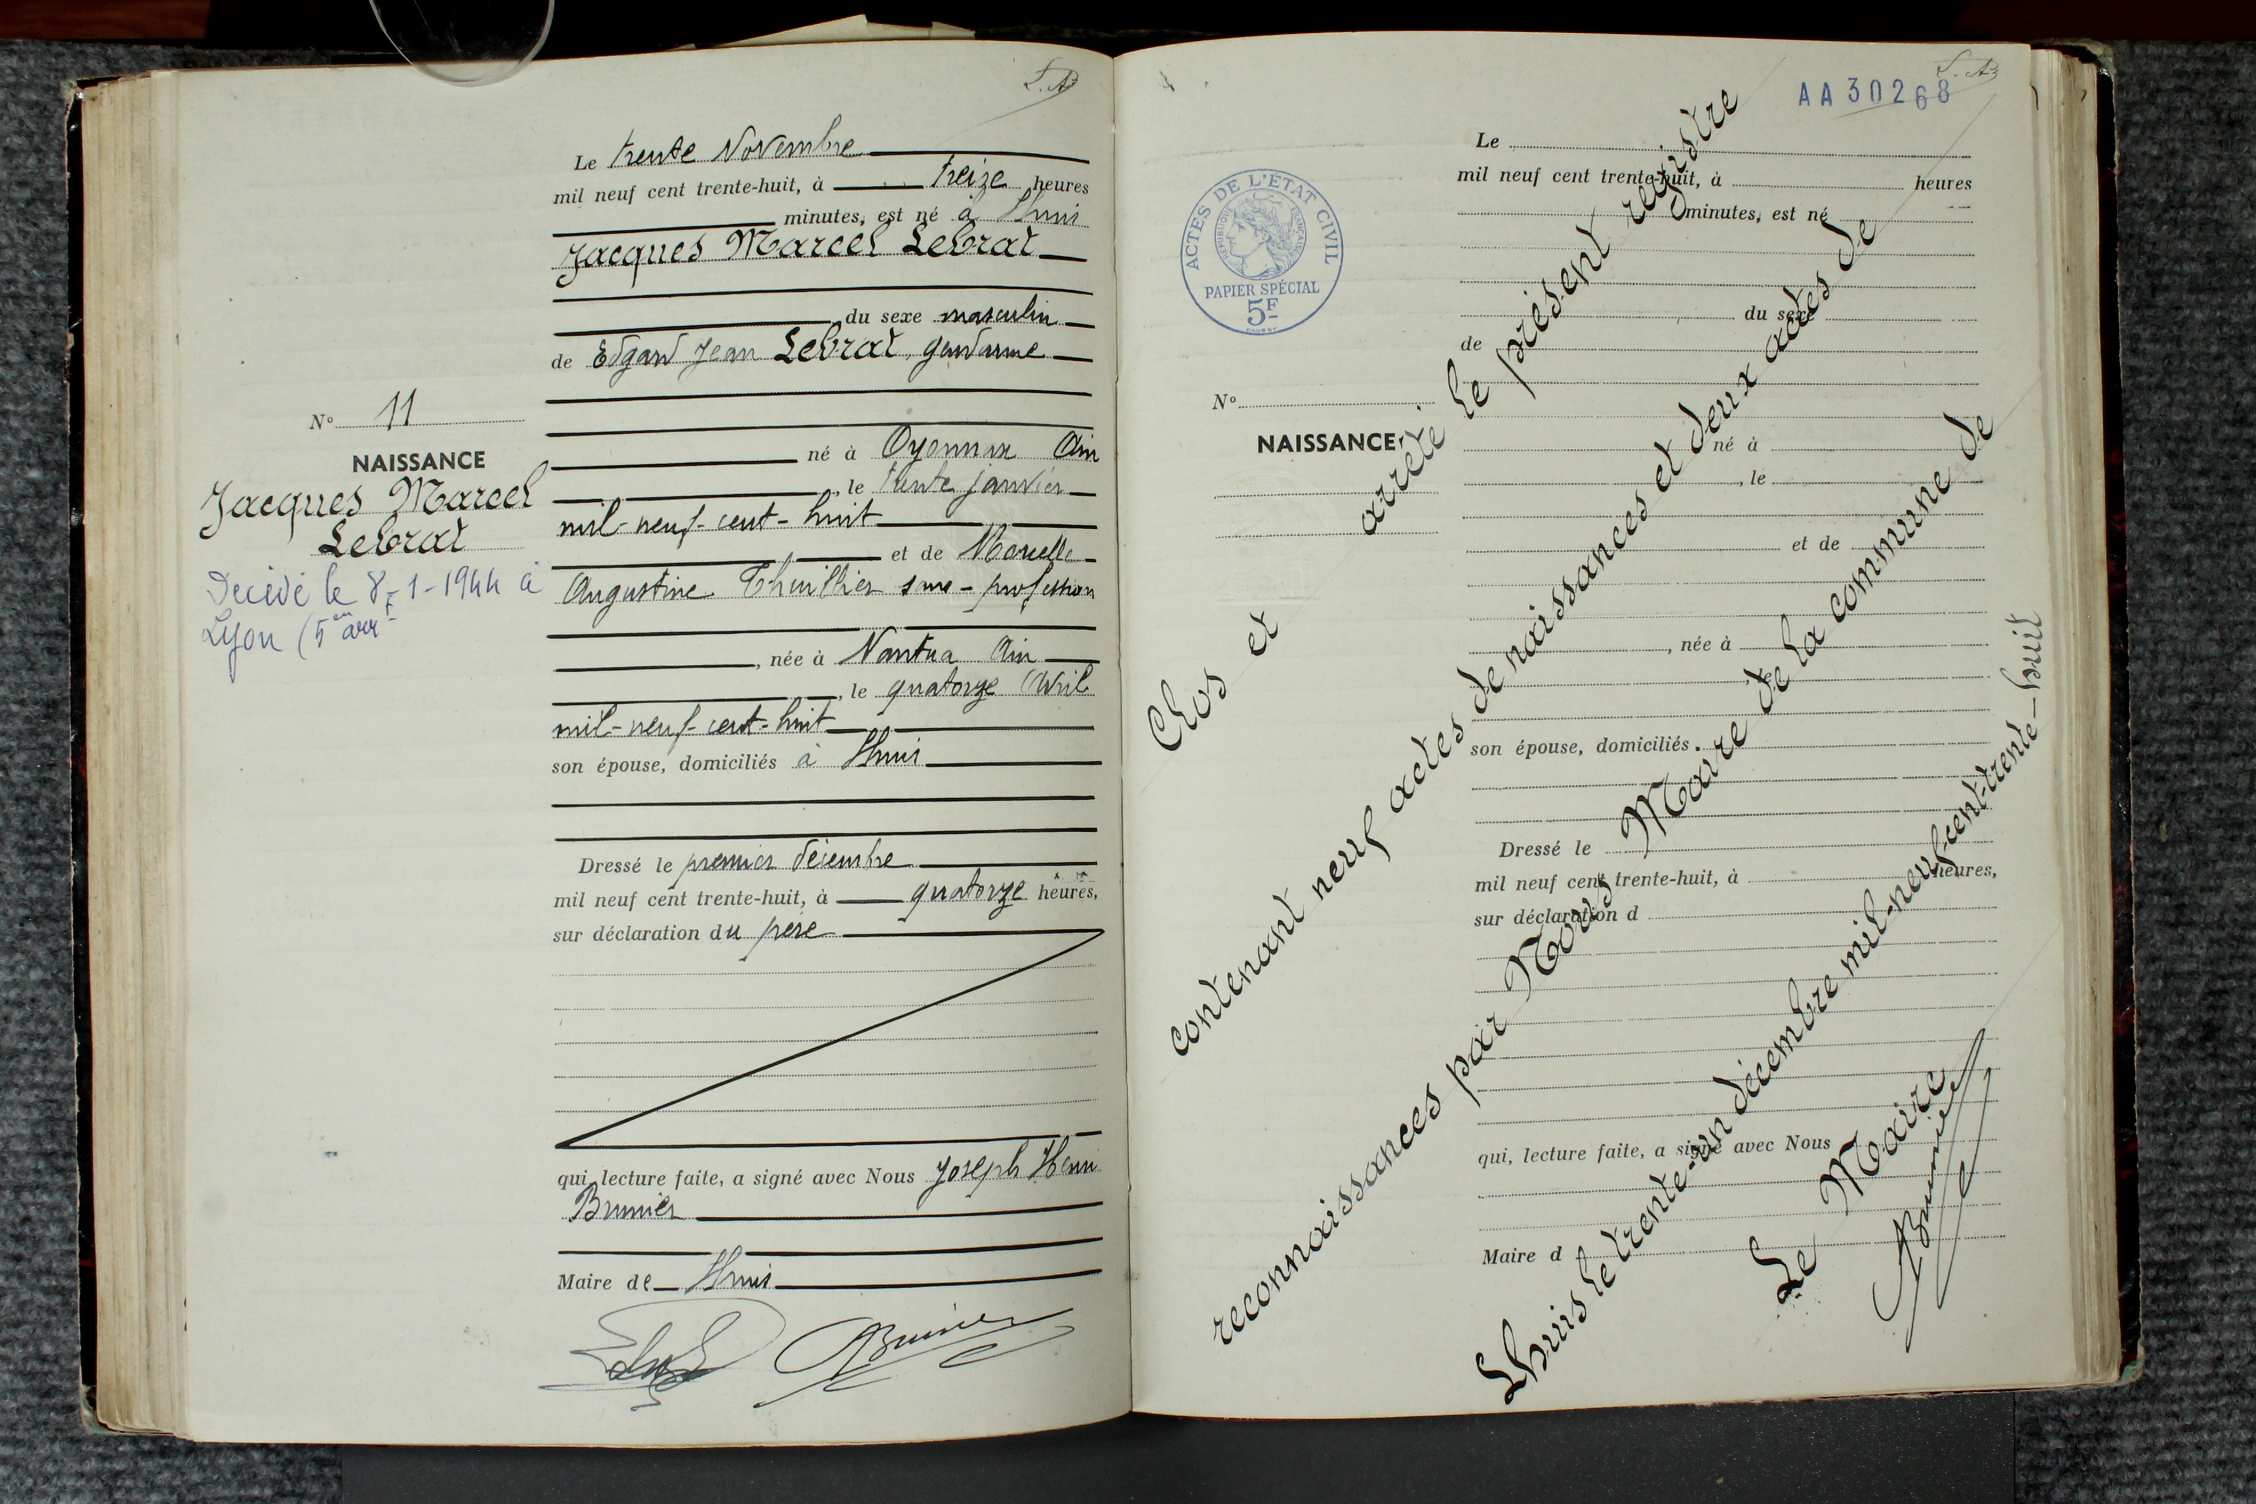 Le trente Novembre
mil neuf cent trente-huit, à treize heures
minutes, est né à Lhuis
Jacques Marcel Lebrat
du sexe masculin
de Edgard Jean Lebrat, gendarme
né à Oyonnax Ain
, le trente janvier
mil-neuf-cent-huit
et de Marcelle
Augustine Thuillier sans-profession
, née à Nantua Ain
, le quatorze Avril
mil-neuf-cent-huit
son épouse, domiciliés à Lhuis
Dressé le premier décembre
mil neuf cent trente-huit, à quatorze heures,
sur déclaration du père
qui, lecture faite, a signé avec Nous Joseph Henri
Brunier
Maire de Lhuis
Brunier
No 11
NAISSANCE
Jacques Marcel
Lebrat
Décédé le 8-1-1944 à
Lyon (5em arrt
AA30268
ACTES DE L'ÉTAT CIVIL
RÉPUBLIQUE FRANÇAISE
PAPIER SPÉCIAL
5F
No
NAISSANCE
Le
mil neuf cent trente-huit, à heures
minutes, est né
du sexe
de
né à
, le
et de
, née à
, le
son épouse, domiciliés
Dressé le
mil neuf cent trente-huit, à heures,
sur déclaration d
qui, lecture faite, a signé avec Nous
Maire d
Clos et arrêté le présent registre
contenant neuf actes de naissances et deux actes de
reconnaissances par Nous Maire de la commune de
Lhuis le trente-un décembre mil-neuf-cent-trente-huit
Le Maire
Brunier